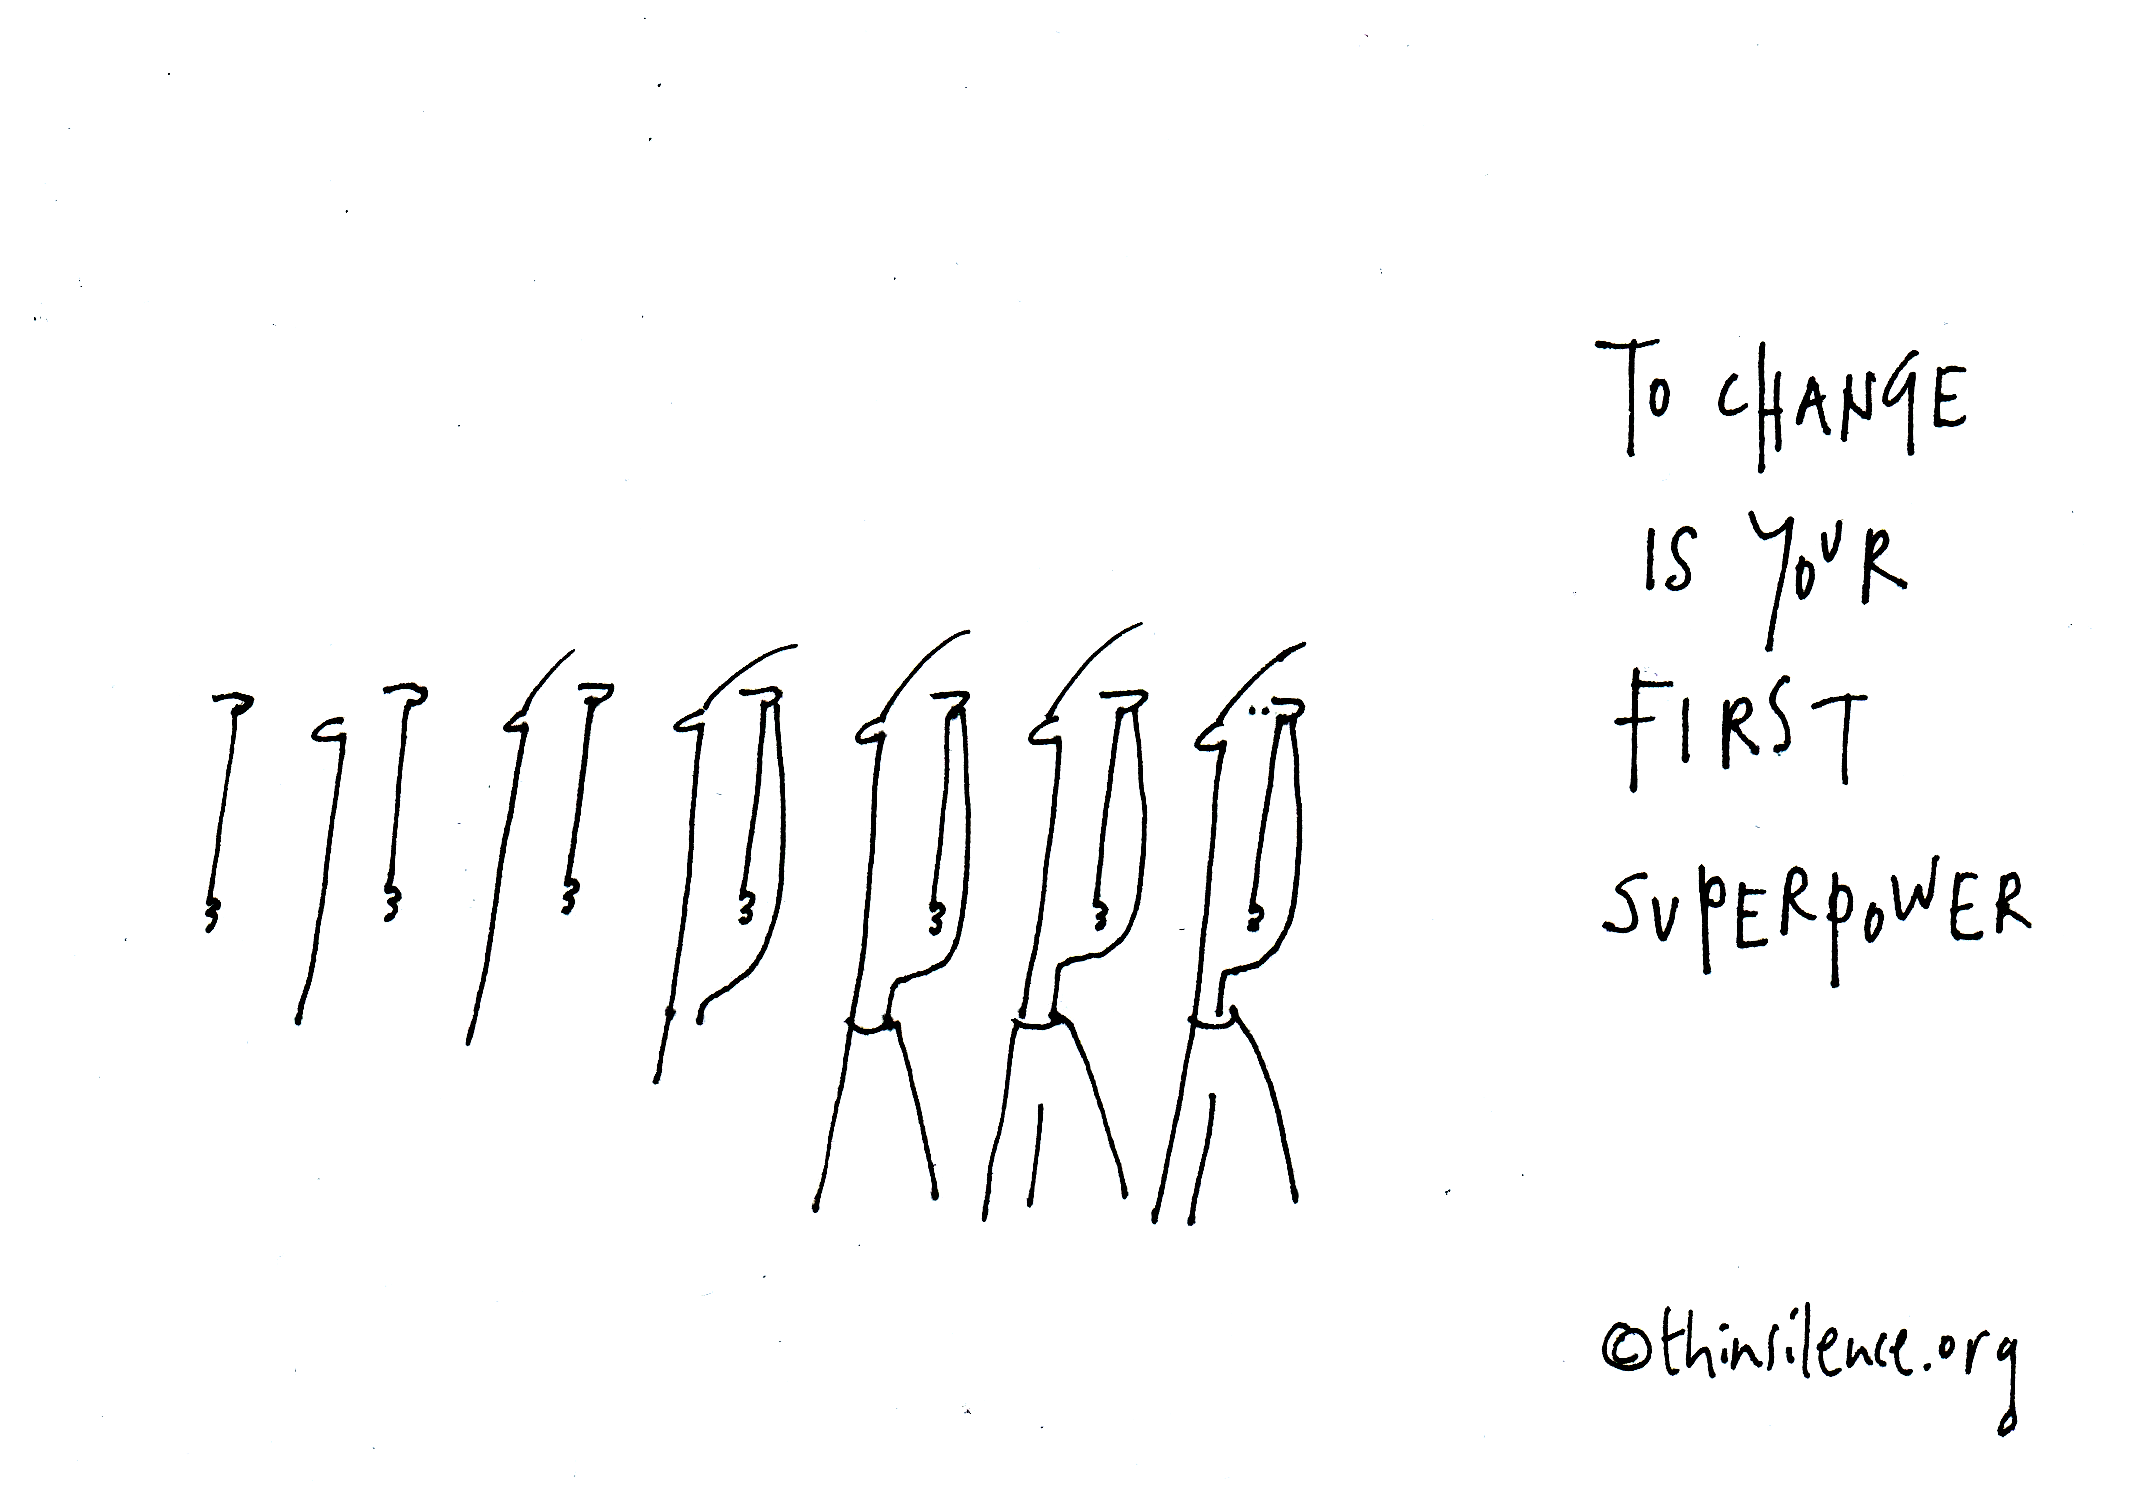 TO CHANGE
IS YOUR
FIRST
SUPERPOWER
©thinsilence.org